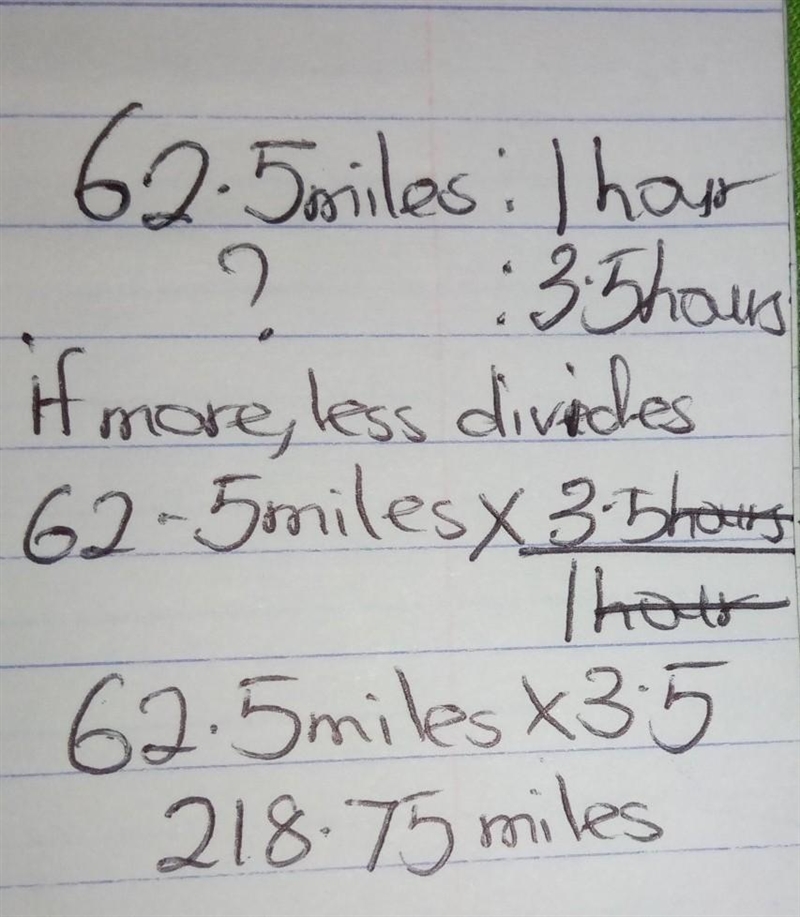 62.5miles : 1 hour
? : 3.5hours
if more, less divides
62.5miles X 3.5hours
1 hour
62.5miles X 3.5
218.75 miles